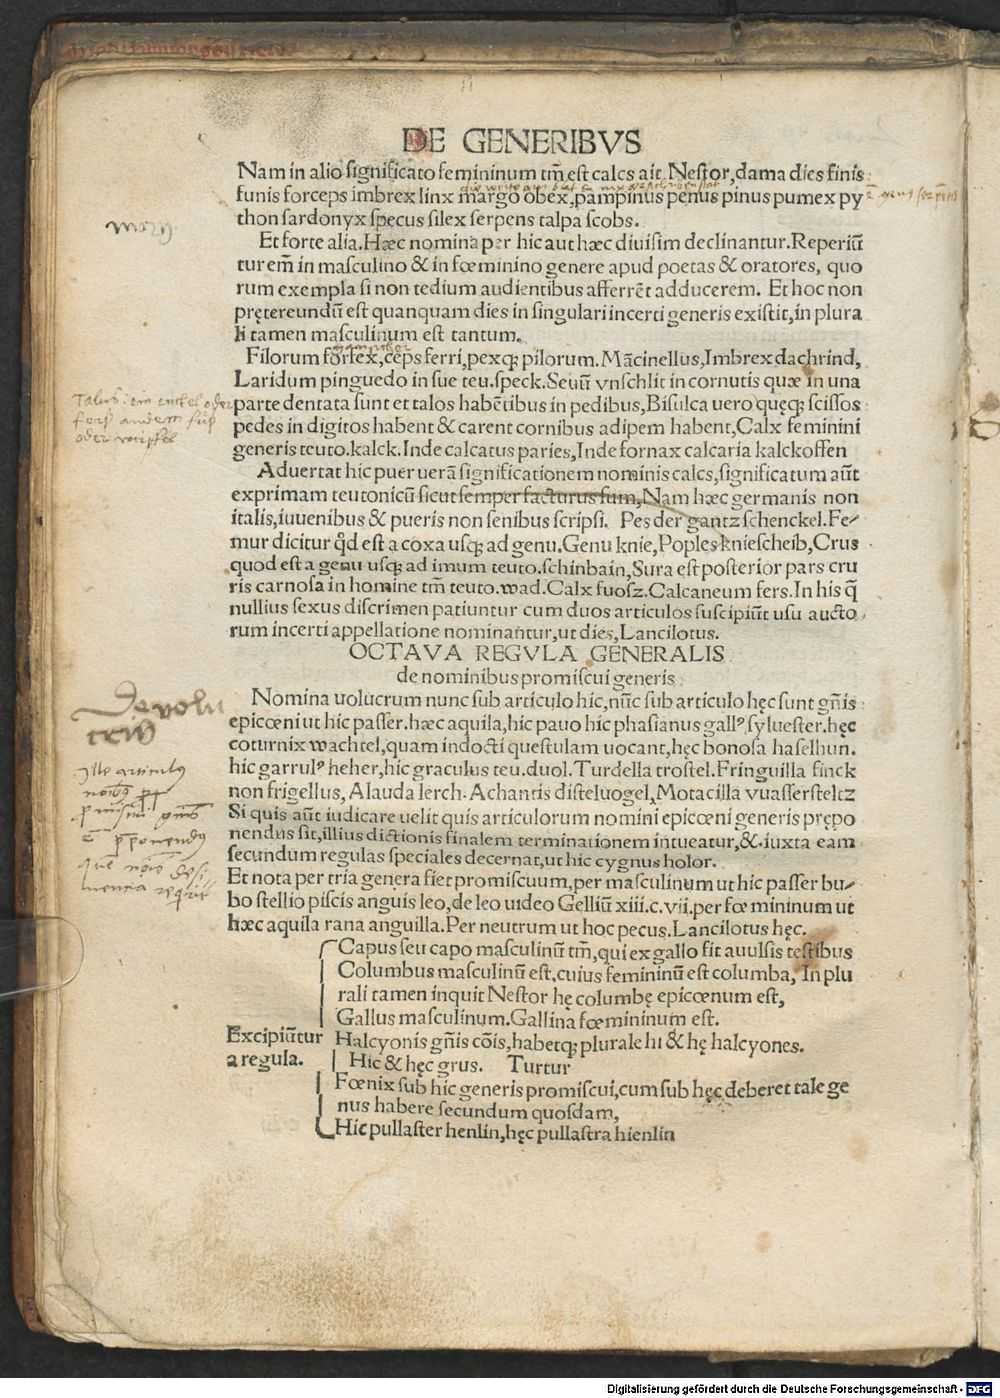 DE GENERIBVS
Nam in alio ſignificato femininum tm̄ eſt calcs ait. Neſtor, dama dies finis
funis forceps imbrex linx margo obex, pampinus penus pinus pumex py
thon ſardonyx ſpecus ſilex ſerpens talpa ſcobs.
Et forte alia. Hæc nomina per hic aut hæc diuiſim declinantur. Reperiū
tur em̄ in maſculino & in fœminino genere apud poetas & oratores, quo
rum exempla ſi non tedium audientibus afferrēt adducerem. Et hoc non
prętereundū eſt quanquam dies in ſingulari incerti generis exiſtit, in plura
li tamen maſculinum eſt tantum.
Filorum forfex, ceps ferri, pexqꝫ pilorum. Mācinellus, Imbrex dachrind,
Laridum pinguedo in ſue teu. ſpeck. Seuū vnſchlit in cornutis quæ in una
parte dentata ſunt et talos habētibus in pedibus, Biſulca uero quęqꝫ ſciſſos
pedes in digitos habent & carent cornibus adipem habent, Calx feminini
generis teuto. kalck. Inde calcatus paries, Inde fornax calcaria kalckoffen
Aduertat hic puer uerā ſignificationem nominis calcs, ſignificatum aūt
exprimam teutonicū ſicut ſemper facturus ſum, Nam hæc germanis non
italis, iuuenibus & pueris non ſenibus ſcripſi. Pes der gantz ſchenckel. Fe-
mur dicitur qđ eſt a coxa uſqꝫ ad genu. Genu knie, Poples knieſcheib, Crus
quod eſt a genu uſqꝫ ad imum teuto. ſchinbain, Sura eſt poſterior pars cru
ris carnoſa in homine tm̄ teuto. wad. Calx fuoſz. Calcaneum fers. In his q̄
nullius ſexus diſcrimen patiuntur cum duos articulos ſuſcipiūt uſu aucto
rum incerti appellatione nominantur, ut dies, Lancilotus.
OCTAVA REGVLA GENERALIS
de nominibus promiſcui generis.
De volu
crib9
Nomina uolucrum nunc ſub articulo hic, nūc ſub articulo hęc ſunt gn̄is
epicœni ut hic paſſer. hæc aquila, hic pauo hic phaſianus gallꝰ ſylueſter. hęc
coturnix wachtel, quam indocti queſtulam uocant, hęc bonoſa haſelhun.
hic garrulꝰ heher, hic graculus teu. duol. Turdella troſtel. Fringuilla finck
non frigellus, Alauda lerch. Achantis diſteluogel, Motacilla vuaſſerſteltz
Si quis aūt iudicare uelit quis articulorum nomini epicœni generis prępo
nendus ſit, illius dictionis finalem terminationem intueatur, & iuxta eam
ſecundum regulas ſpeciales decernat, ut hic cygnus holor.
Et nota per tria genera fiet promiſcuum, per maſculinum ut hic paſſer bu-
bo ſtellio piſcis anguis leo, de leo uideo Gelliū xiii. c. vii. per fœmininum ut
hæc aquila rana anguilla. Per neutrum ut hoc pecus. Lancilotus hęc.
Capus ſeu capo maſculinū tm̄, qui ex gallo fit auulſis teſtibus
Columbus maſculinū eſt, cuius femininū eſt columba, In plu
rali tamen inquit Neſtor hę columbę epicœnum eſt,
Gallus maſculinum. Gallina fœmininum eſt.
Excipiūtur
a regula.
Halcyonis gn̄is cōis, habetqꝫ plurale hi & hę halcyones.
Hic & hęc grus. Turtur
Fœnix ſub hic generis promiſcui, cum ſub hęc deberet tale ge
nus habere ſecundum quoſdam,
Hic pullaſter henlin, hęc pullaſtra hienlin
Talus : ein enckel oder
oder würfel
Ille articulus
Digitalisierung gefördert durch die Deutsche Forschungsgemeinschaft - DFG